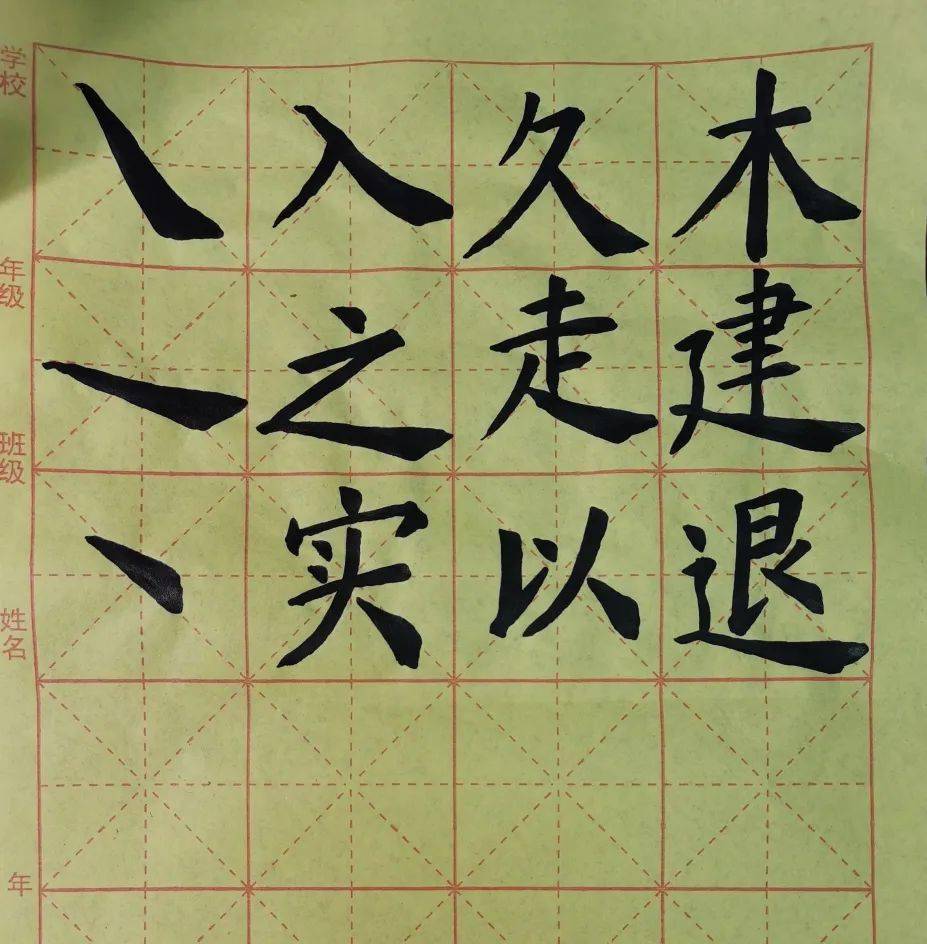 学校
㇏ 入 久 木
年级
㇏ 之 走 建
班级
丶 实 以 退
姓名
年